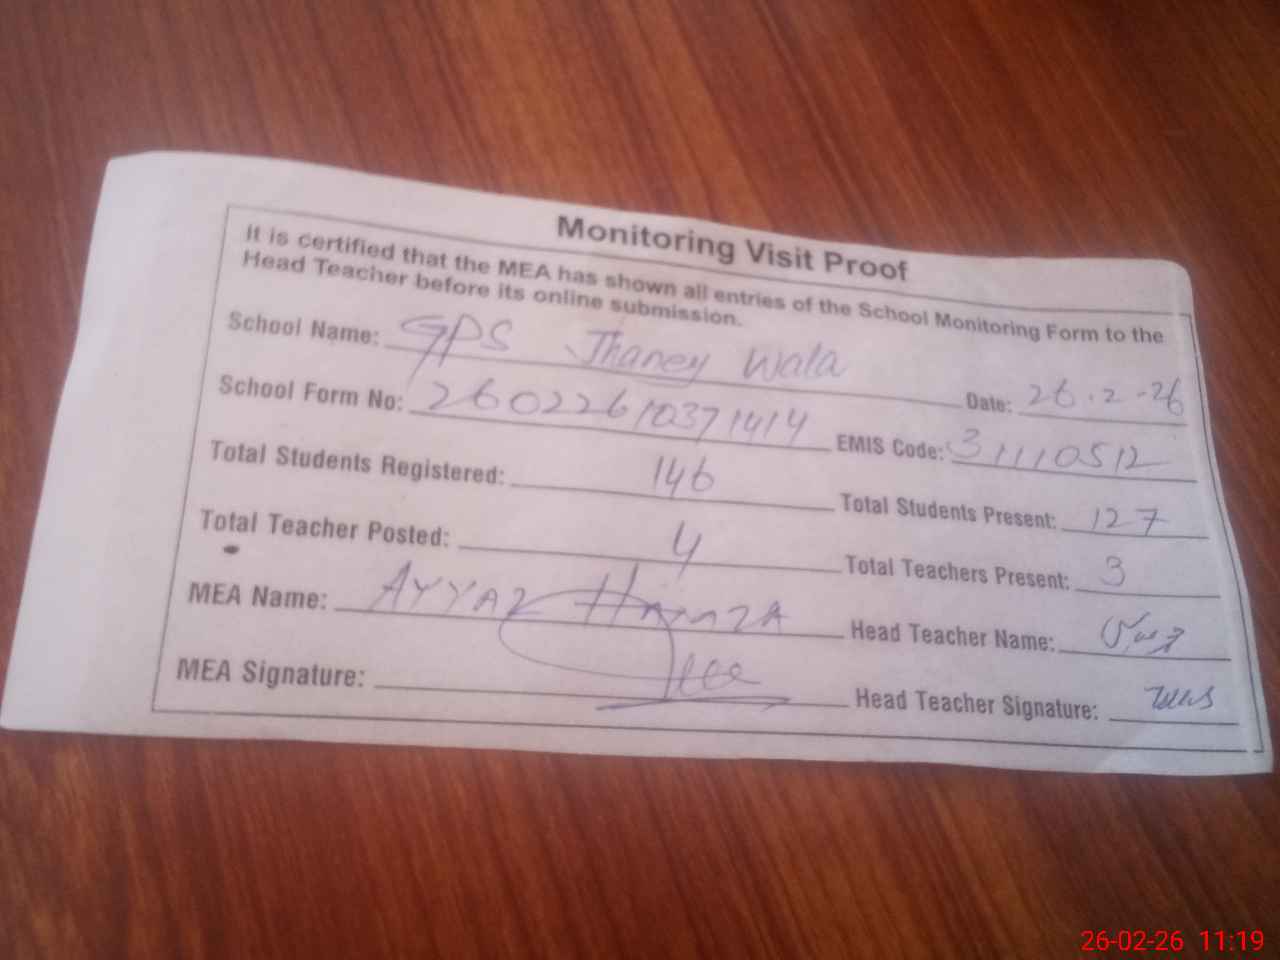 Monitoring Visit Proof
It is certified that the MEA has shown all entries of the School Monitoring Form to the
Head Teacher before its online submission.
School Name: GPS Jhaney Wala
Date: 26.2-26
School Form No: 26022610371414
EMIS Code: 31110512
Total Students Registered: 146
Total Students Present: 127
Total Teacher Posted: 4
Total Teachers Present: 3
MEA Name: AYYAZ HAMZA
Head Teacher Name:
MEA Signature:
Head Teacher Signature:
26-02-26 11:19